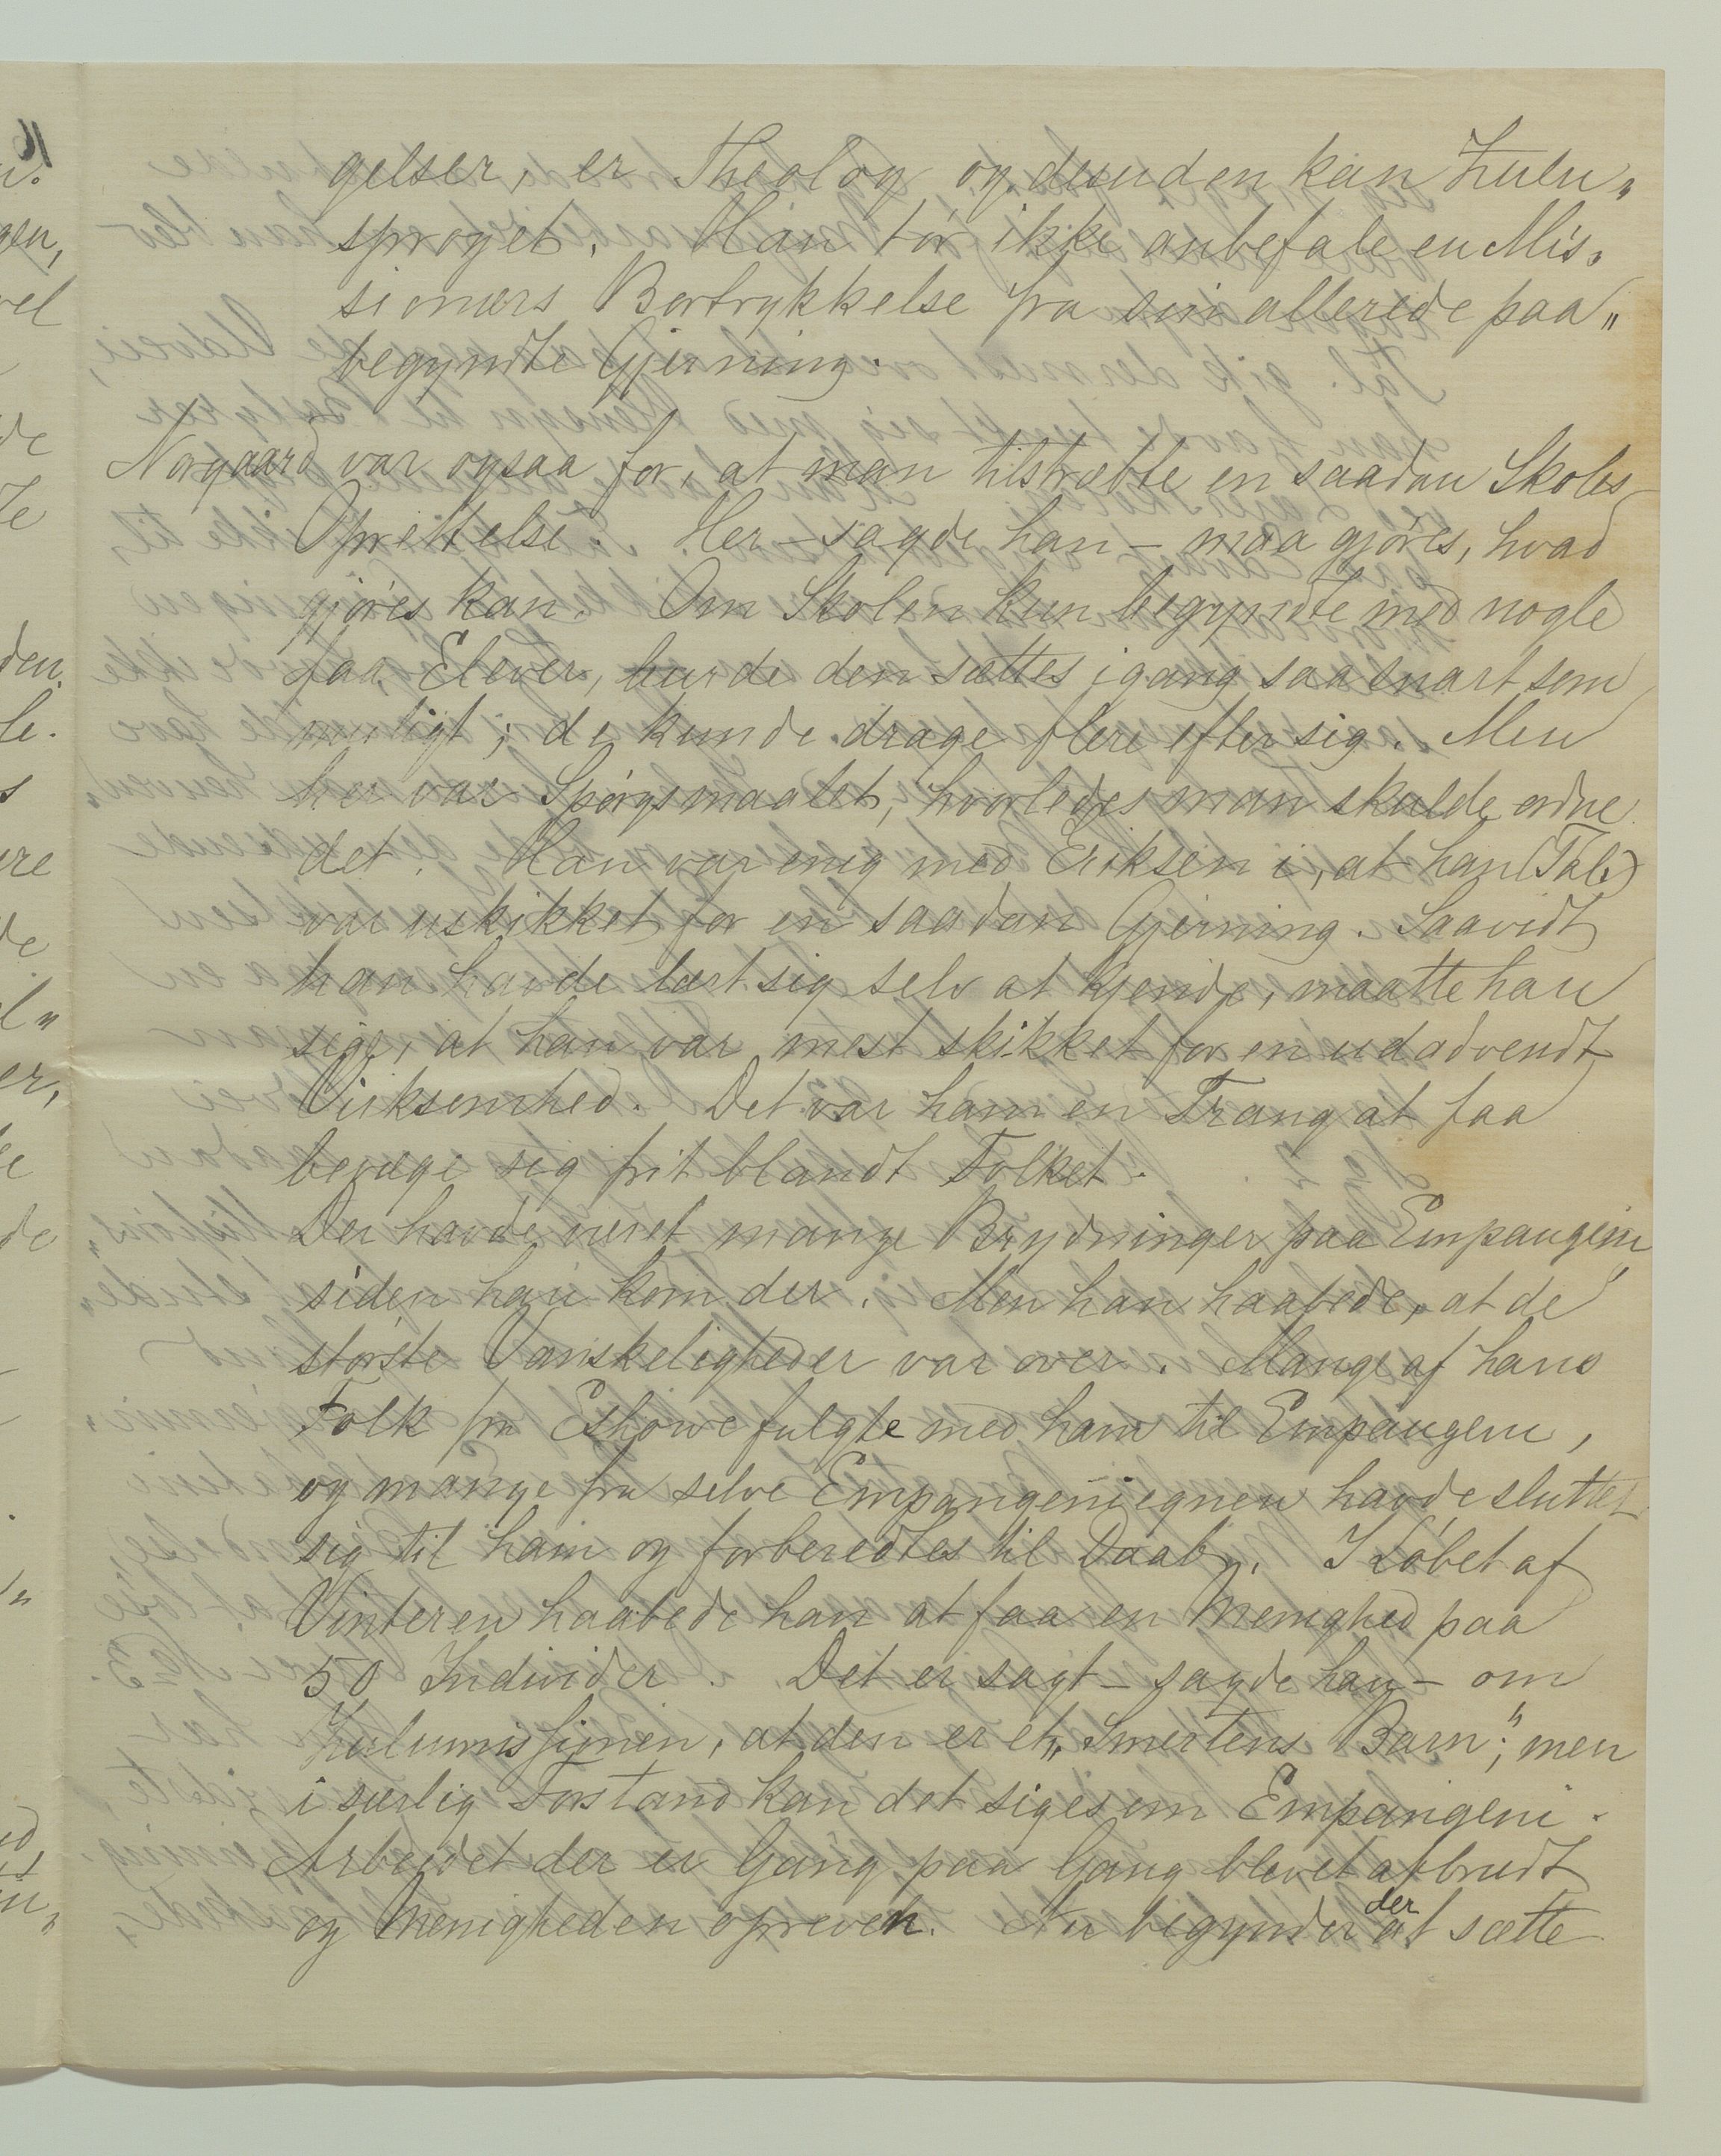 gelser, er Theolog og desuden kan Zulu„
sproget. Han tør ikke anbefale en Mis„
sionærs Bortrykkelse fra sin allerede paa„
begyndte Gjerning.
Norgaard var ogsaa for, at man tilstræbte en saadan Skoles
Oprettelse. Her – sagde han – maa gjøres, hvad
gjøres kan. Om Skolen kun begyndte med nogle
faa Elever, burde den sættes igang saasnart som
muligt; de kunde drage flere efter sig. Men
her var Spørgsmaalet, hvorledes man skulde ordne
det. Han var enig med Eriksen i, at han (Tal.)
var uskikket for en saadan Gjerning. Saavidt
han havde lært sig selv at kjende, maatte han
sige, at han var mest skikket for en udadvendt
Virksomhed. Det var ham en Trang at faa
bevæge sig frit blandt Folket.
Der havde været mange Brydninger paa Empangeni
siden han kom der. Men han haabede, at de
største Vanskeligheder var over. Mange af hans
Folk fra Eshowe fulgte med ham til Empangeni,
og mange fra selve Empangeniegnen havde sluttet
sig til ham og forberedtes til Daab. I Løbet af
Vinteren haabede han at faa en Menighed paa
50 Individer. Det er sagt – sagde han – om
Zulumissionen, at den er et „Smertens Barn"; men
i særlig Forstand kan det siges om Empangeni.
Arbejdet der er Gang paa Gang blevet afbrudt
og Menigheden opreven. Nu begynder der at sætte